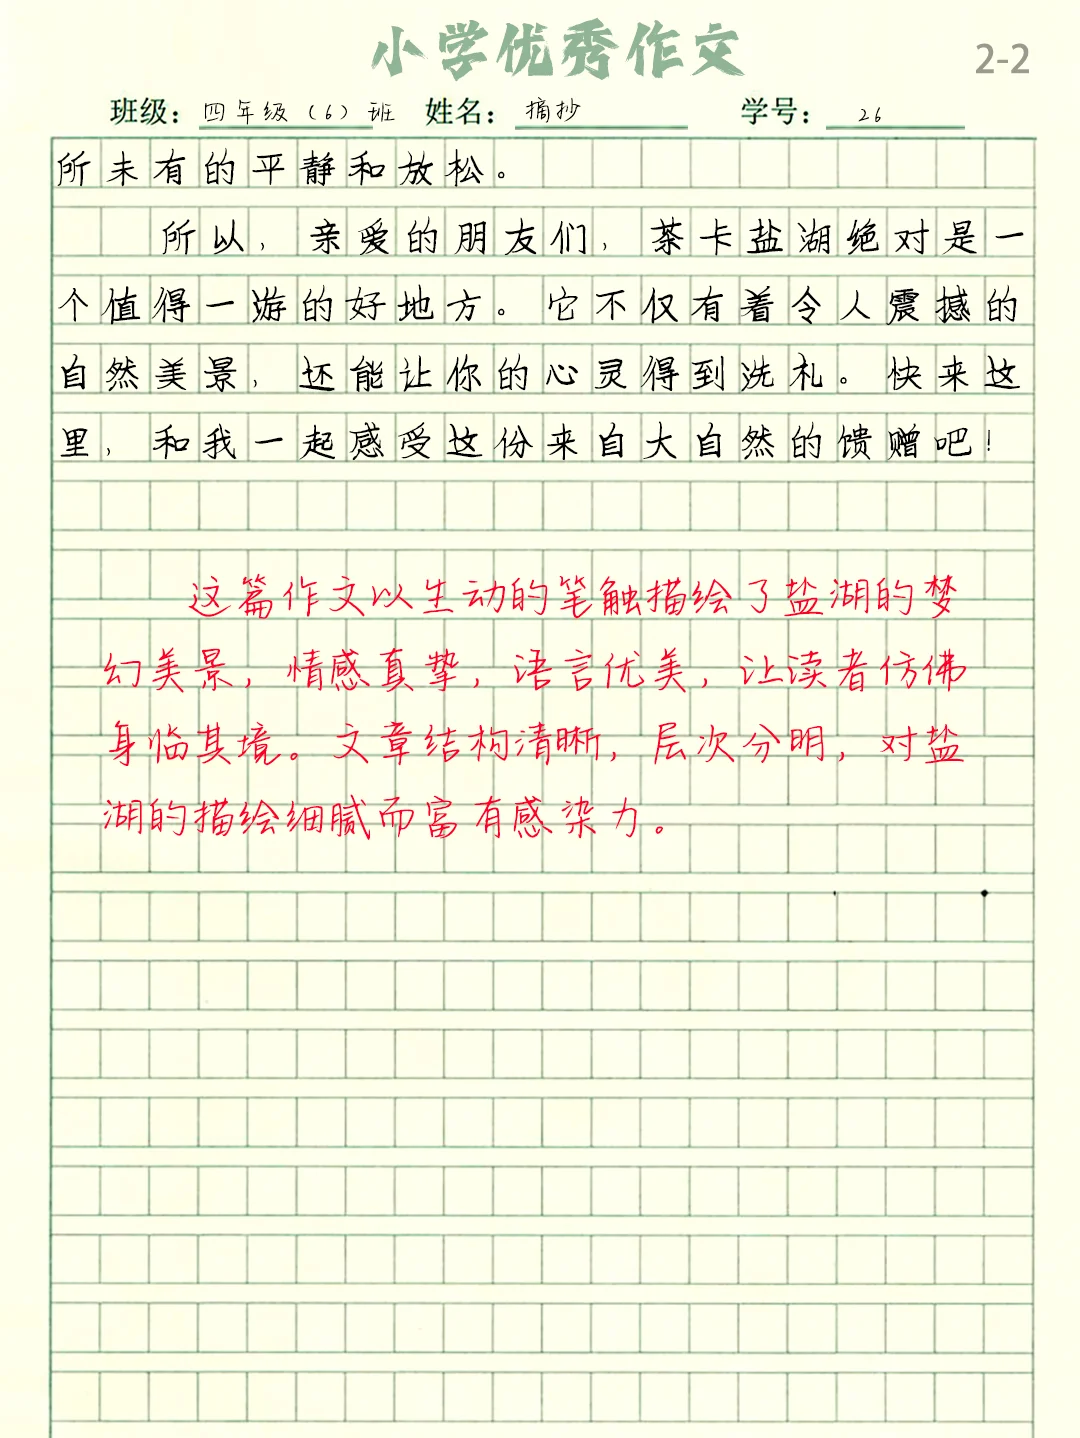 小学优秀作文
2-2
班级：四年级（6）班 姓名：摘抄 学号：26
所未有的平静和放松。
所以，亲爱的朋友们，茶卡盐湖绝对是一
个值得一游的好地方。它不仅有着令人震撼的
自然美景，还能让你的心灵得到洗札。快来这
里，和我一起感受这份来自大自然的馈赠吧！
这篇作文以生动的笔触描绘了盐湖的梦
幻美景，情感真挚，语言优美，让读者仿佛
身临其境。文章结构清晰，层次分明，对盐
湖的描绘细腻而富有感染力。